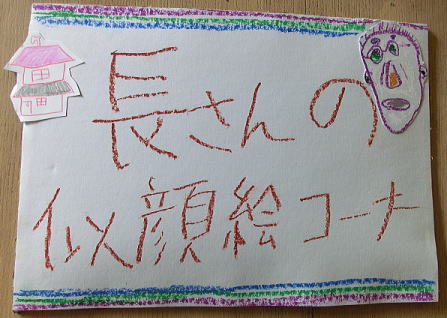 長さんの
似顔絵コーナー